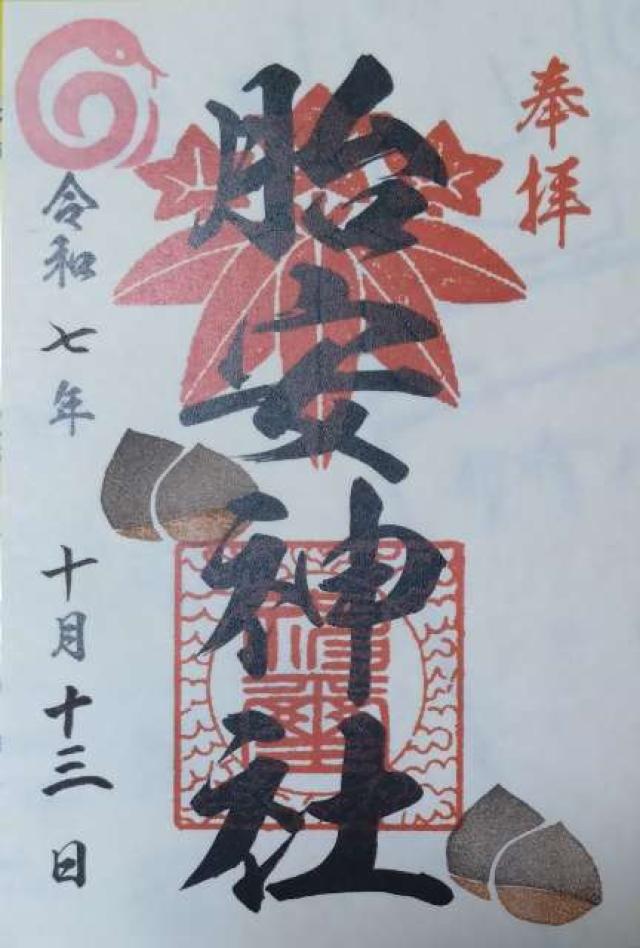 奉拝
胎安神社
令和七年 十月十三日